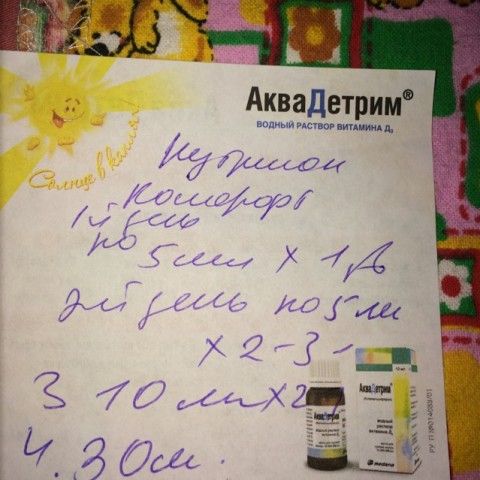 АкваДетрим®
ВОДНЫЙ РАСТВОР ВИТАМИНА Д₃
Солнце в капле!
Нутрилон
Комфорт
1й день
по
5 мл х 1 р
2й день по 5 мл
х 2-3
3 10 мл х 2
4. 30 м.
АкваДетрим
АкваДетрим
medana